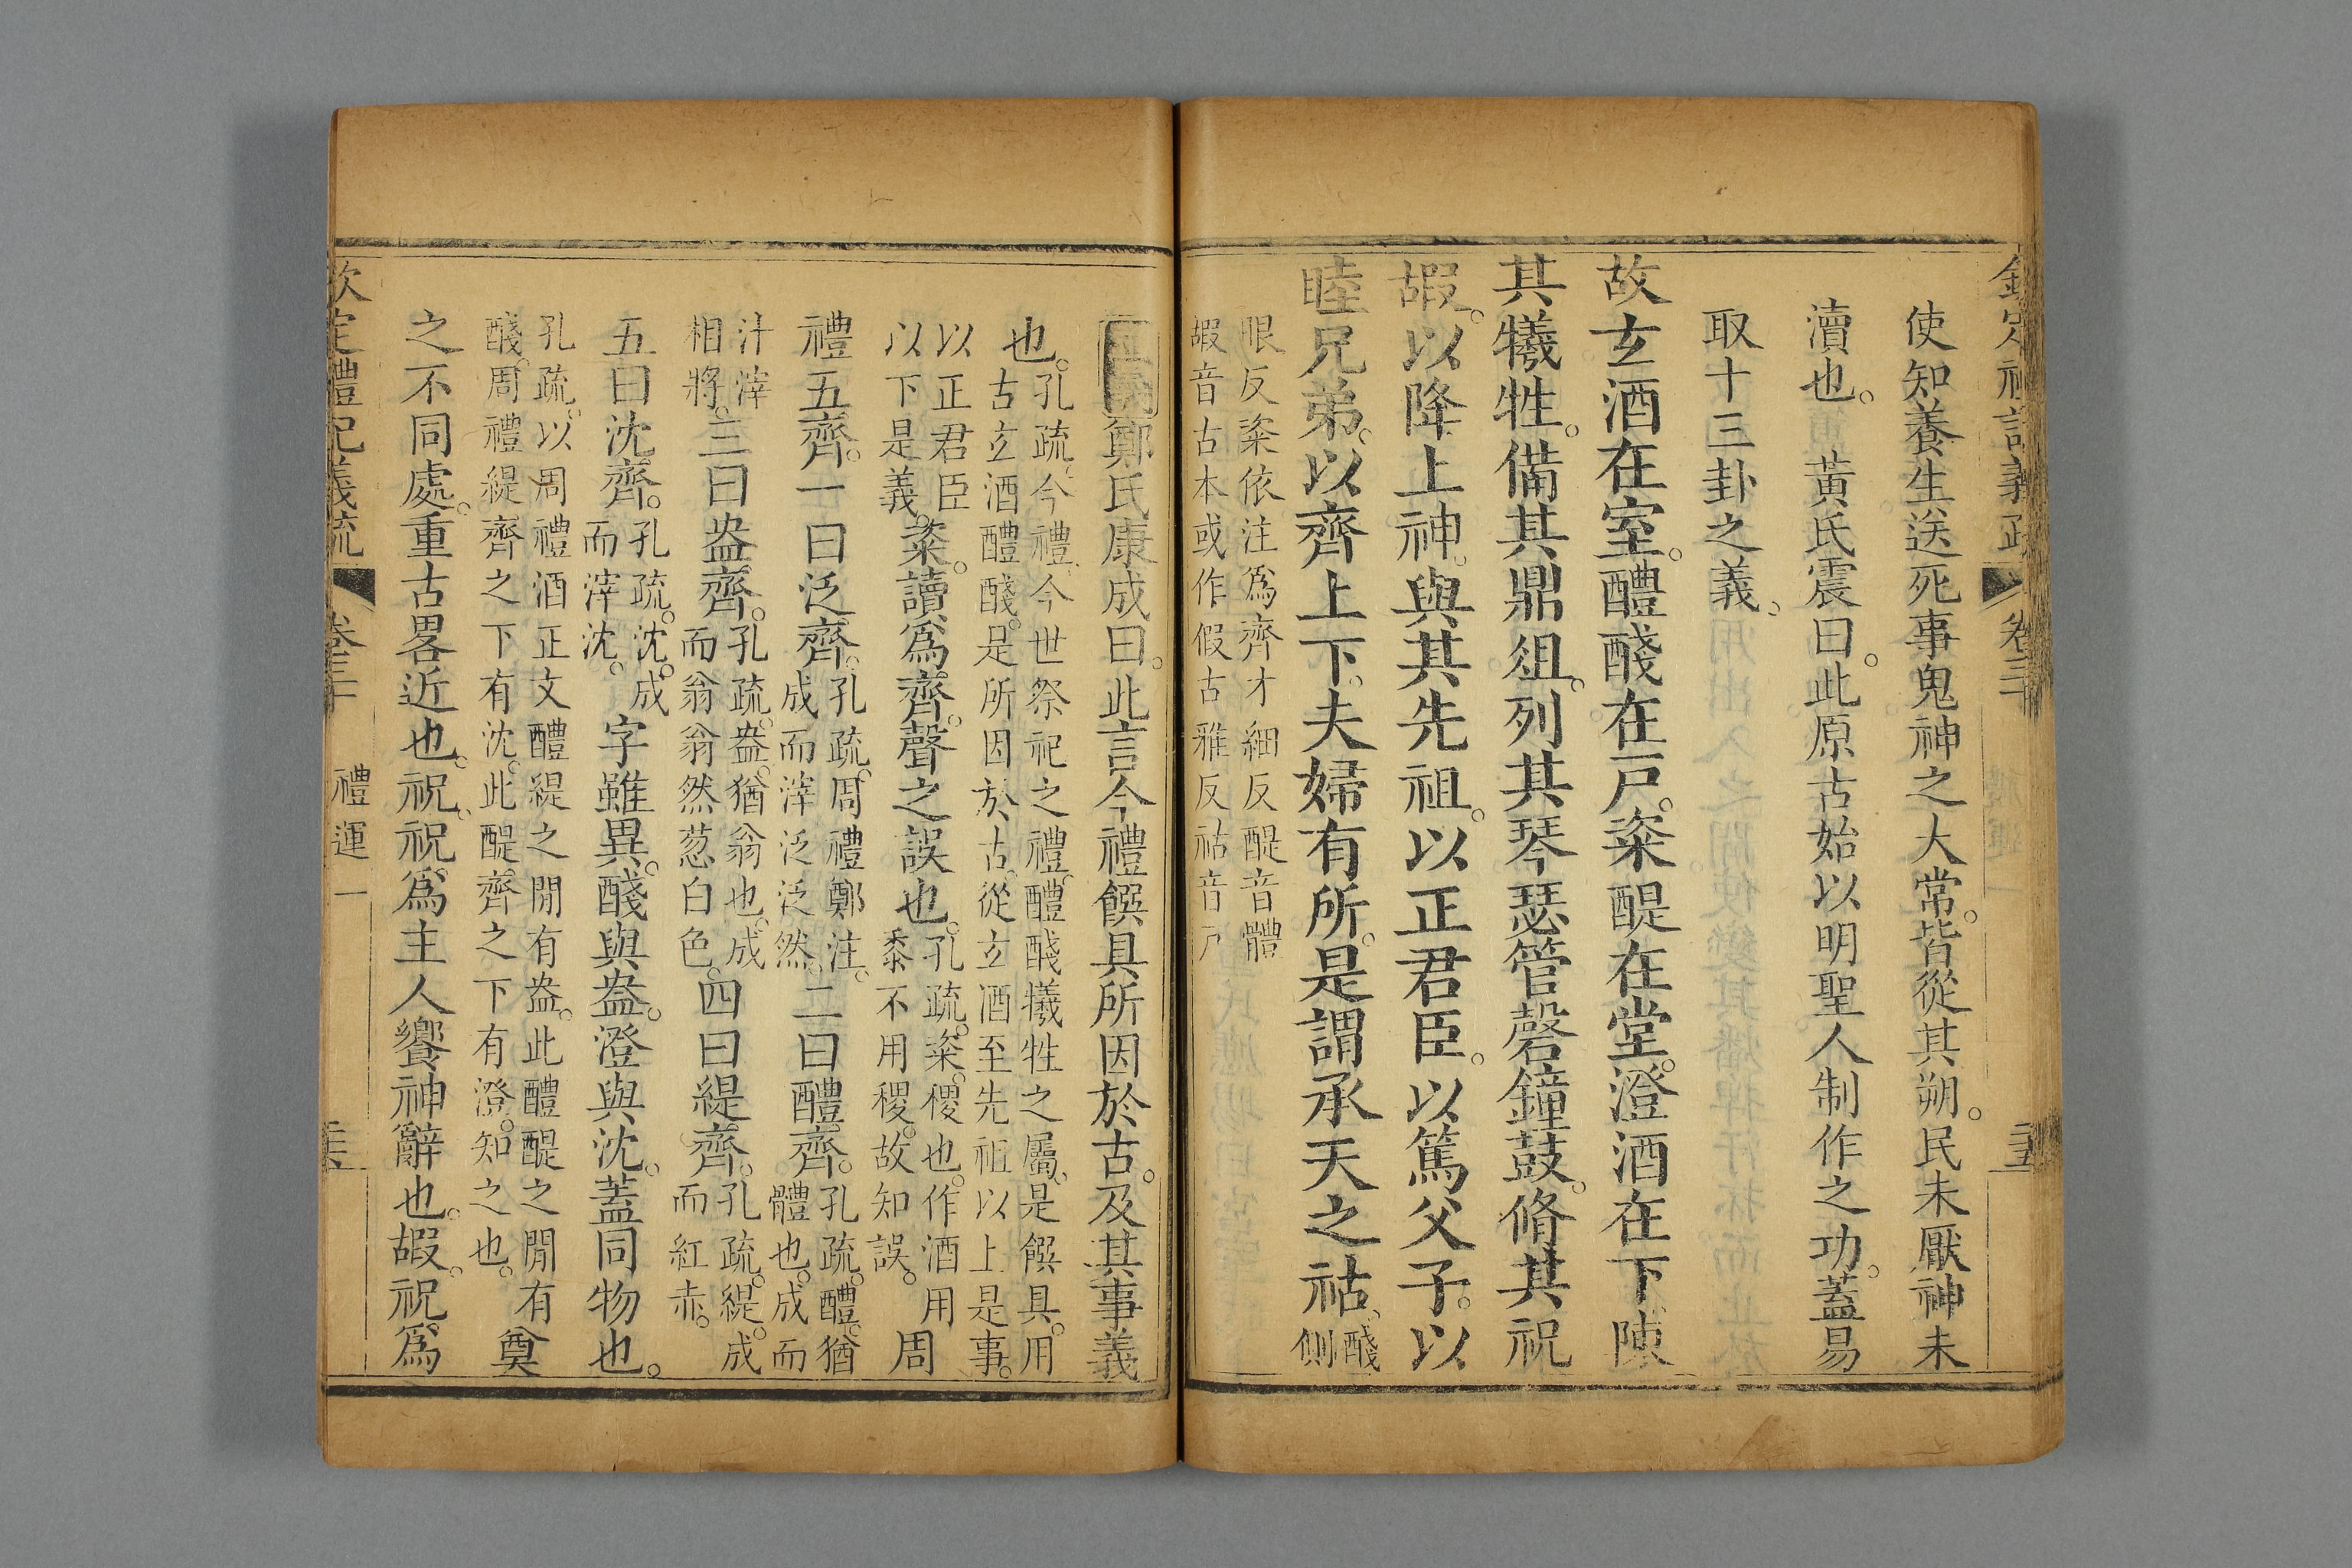 使知養生送死事鬼神之大常。皆從其朔。民未厭神未
瀆也。 黃氏震曰。此原古始以明聖人制作之功。蓋易
取十三卦之義。
故玄酒在室。醴醆在戶。粢醍在堂。澄酒在下。陳
其犧牲。備其鼎俎。列其琴瑟管磬鐘鼓。脩其祝
嘏。以降上神。與其先祖。以正君臣。以篤父子。以
睦兄弟。以齊上下。夫婦有所。是謂承天之祜。醆側
眼反粢依注爲齊才細反醍音體
嘏音古本或作假古雅反祜音戶
鄭氏康成曰。此言今禮饌具所因於古。及其事義
也。
孔疏。今禮。今世祭祀之禮。醴醆犧牲之屬。是饌具。用
古玄酒醴醆。是所因於古。從玄酒至先祖以上是事。
以正君臣
以下是義。
粢。讀爲齊。聲之誤也。
孔疏。粢。稷也。作酒用
黍不用稷。故知誤。
周
禮五齊。一曰泛齊。
孔疏。周禮鄭注。
成而滓泛泛然。
二曰醴齊。
孔疏。醴。猶
體也。成而
汁滓
相將。
三曰盎齊。
孔疏。盎。猶翁也。成
而翁翁然葱白色。
四曰緹齊。
孔疏。緹。成
而紅赤。
五曰沈齊。
孔疏。沈。成
而滓沈。
字雖異。醆與盎。澄與沈。蓋同物也。
孔疏。以周禮酒正文醴緹之閒有盎。此醴醍之閒有
醆。周禮緹齊之下有沈。此醍齊之下有澄。知之也。
奠
之不同處。重古畧近也。祝。祝爲主人饗神辭也。嘏。祝爲
欽定禮記義疏 卷三十 禮運一